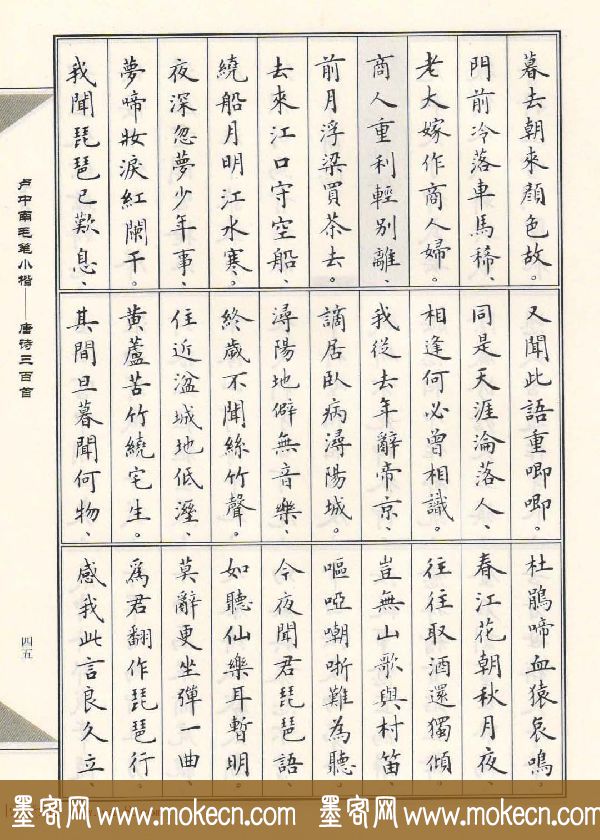 暮去朝來顏色故。
門前冷落車馬稀、
老大嫁作商人婦。
商人重利輕別離、
前月浮梁買茶去。
去來江口守空船、
繞船月明江水寒。
夜深忽夢少年事、
夢啼妝淚紅闌干。
我聞琵琶已歎息、
又聞此語重唧唧。
同是天涯淪落人、
相逢何必曾相識。
我從去年辭帝京、
謫居臥病潯陽城。
潯陽地僻無音樂、
終歲不聞絲竹聲。
住近湓城地低溼、
黃蘆苦竹繞宅生。
其間旦暮聞何物、
杜鵑啼血猿哀鳴。
春江花朝秋月夜、
往往取酒還獨傾。
豈無山歌與村笛、
嘔啞嘲哳難為聽。
今夜聞君琵琶語、
如聽仙樂耳暫明。
莫辭更坐彈一曲、
為君翻作琵琶行。
感我此言良久立、
卢中南毛笔小楷——唐诗三百首
四五
墨客网 www.mokecn.com 墨客网 www.mokecn.com